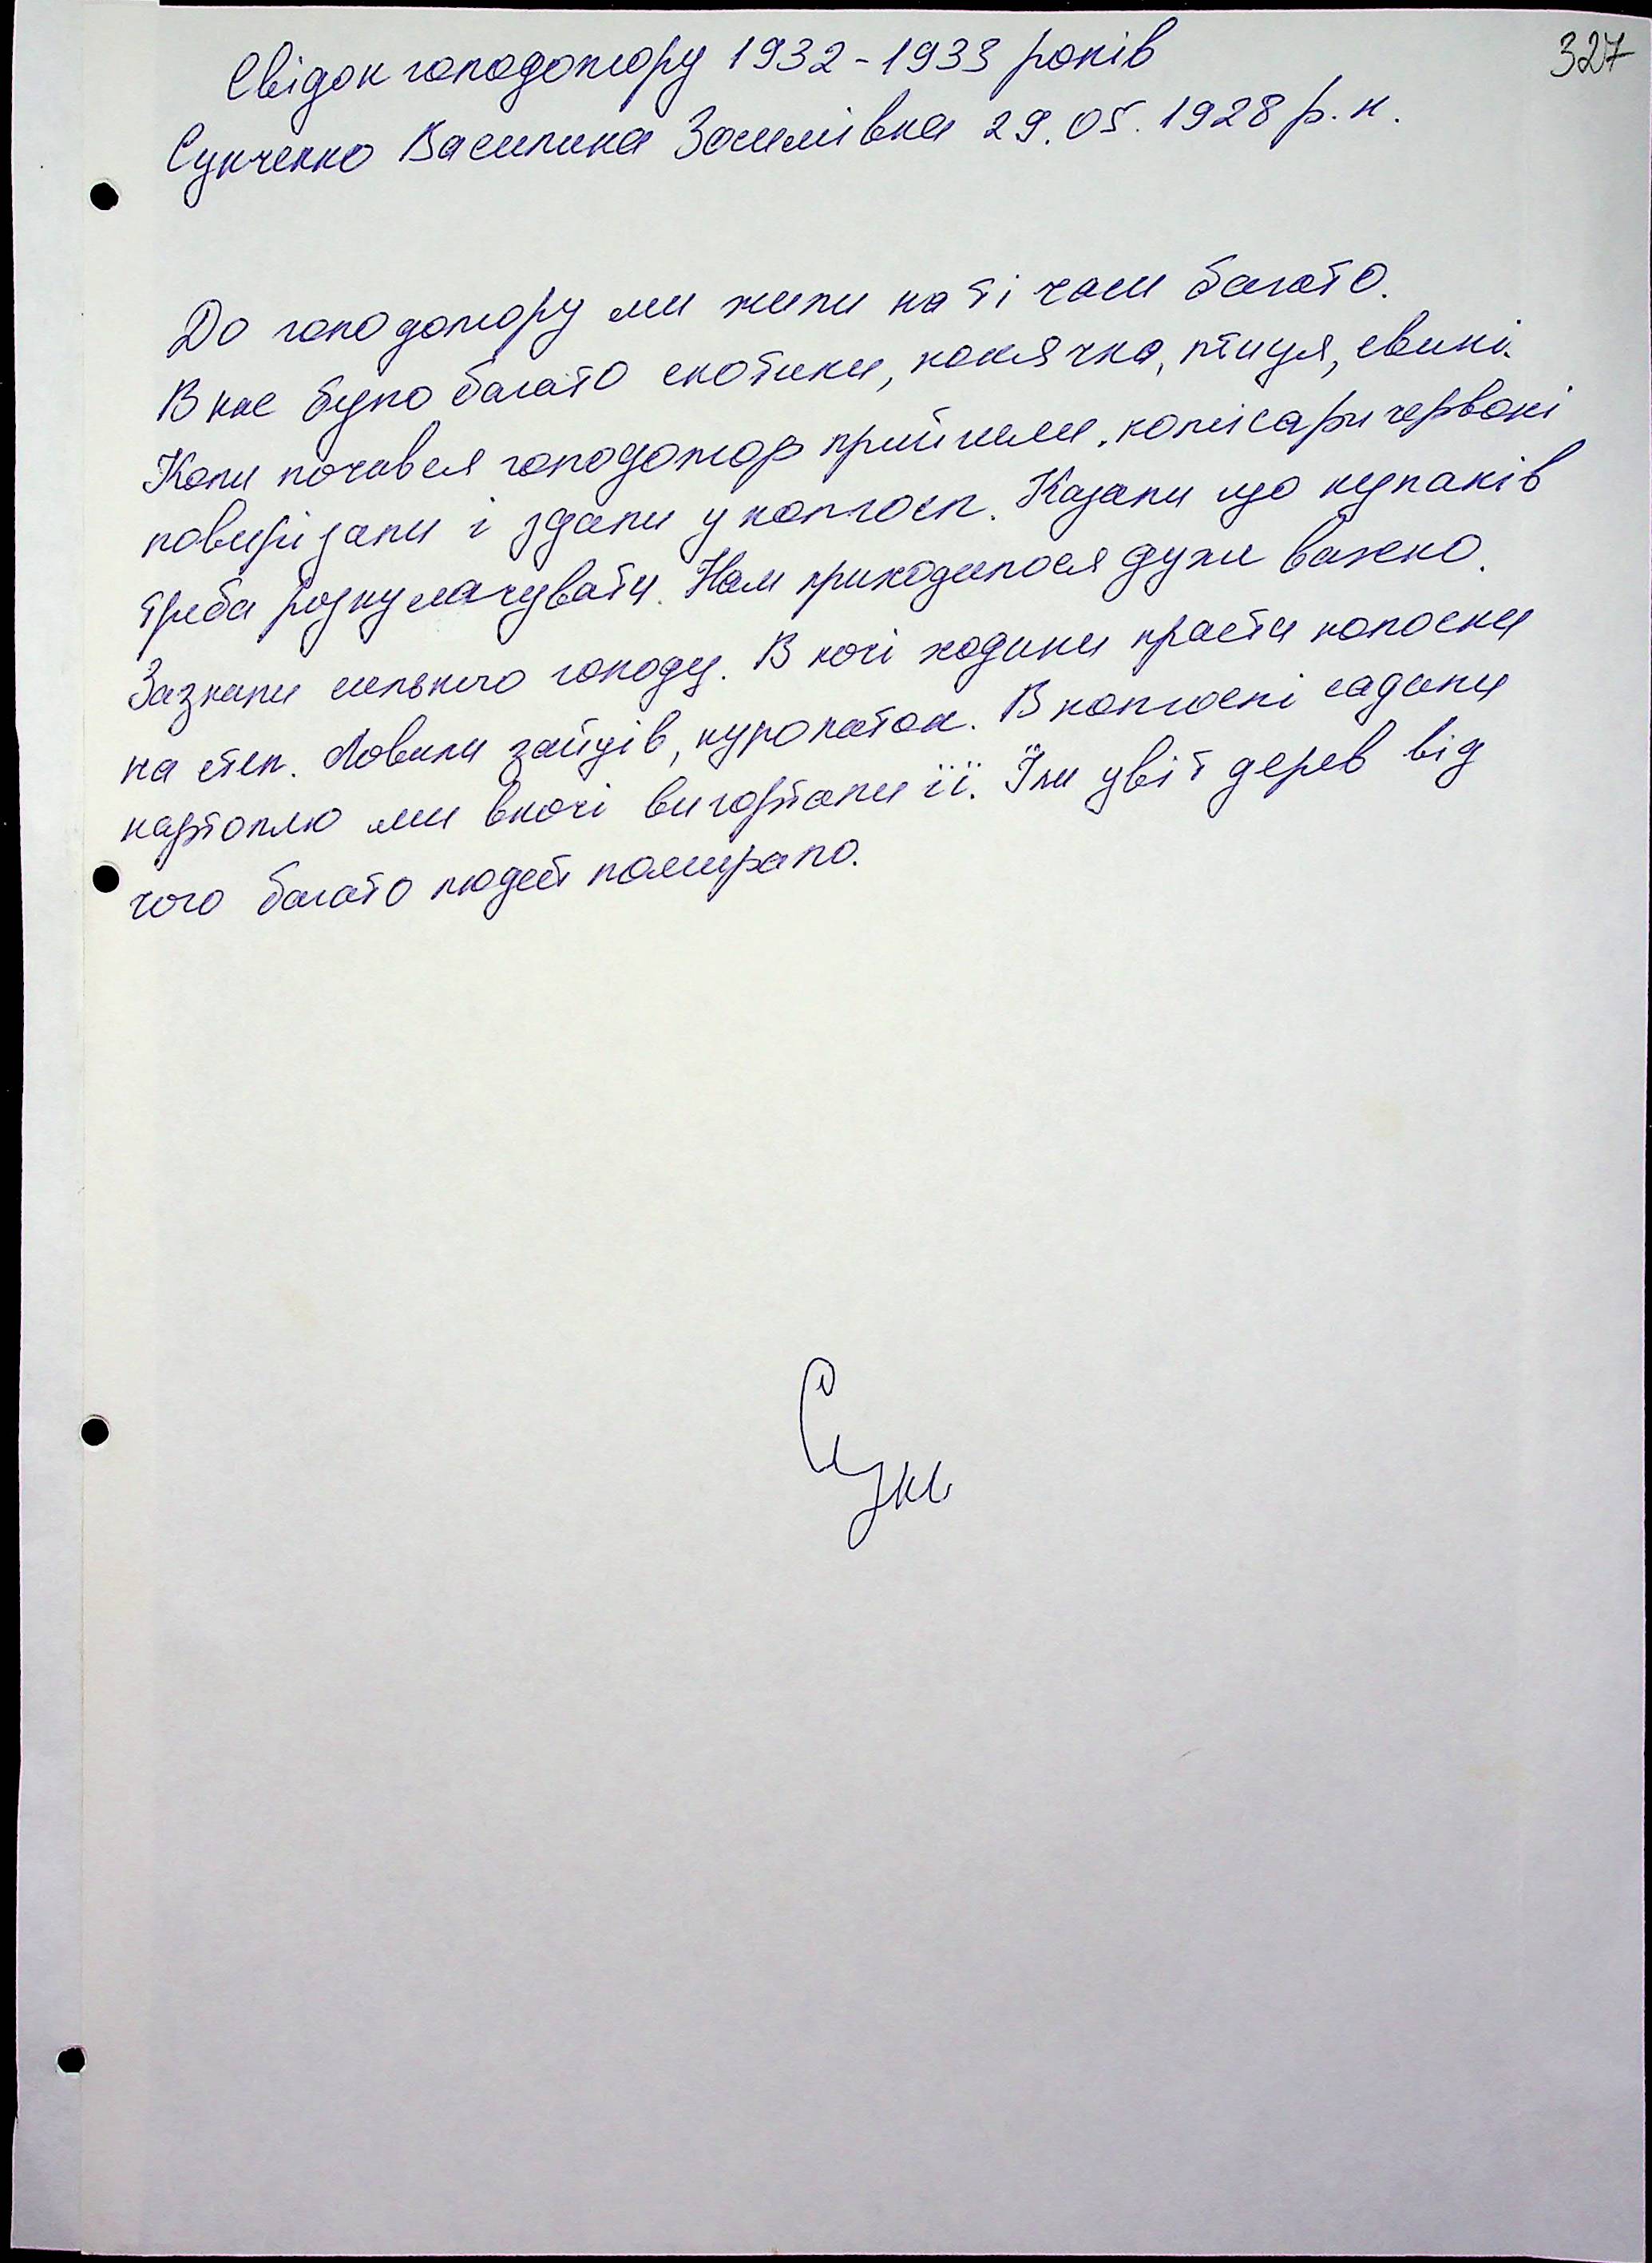 327
Свідок голодомору 1932-1933 років
Сунченко Василина Зосимівна 29.05.1928 р.н.
До голодомору ми жили на ті часи багато.
В нас було багато скотини, конячка, птиця, свині.
Коли почався голодомор прийшли комісари червоні
повирізали і здали у колгосп. Казали що кулаків
треба розкулачувати. Нам приходилося дуже важко.
Зазнали сильного голоду. В ночі ходили красти колоски
на степ. Ловили зайців, куропаток. В колгоспі садили
картоплю ми вночі вигортали її. Їли цвіт дерев від
чого багато людей помирало.